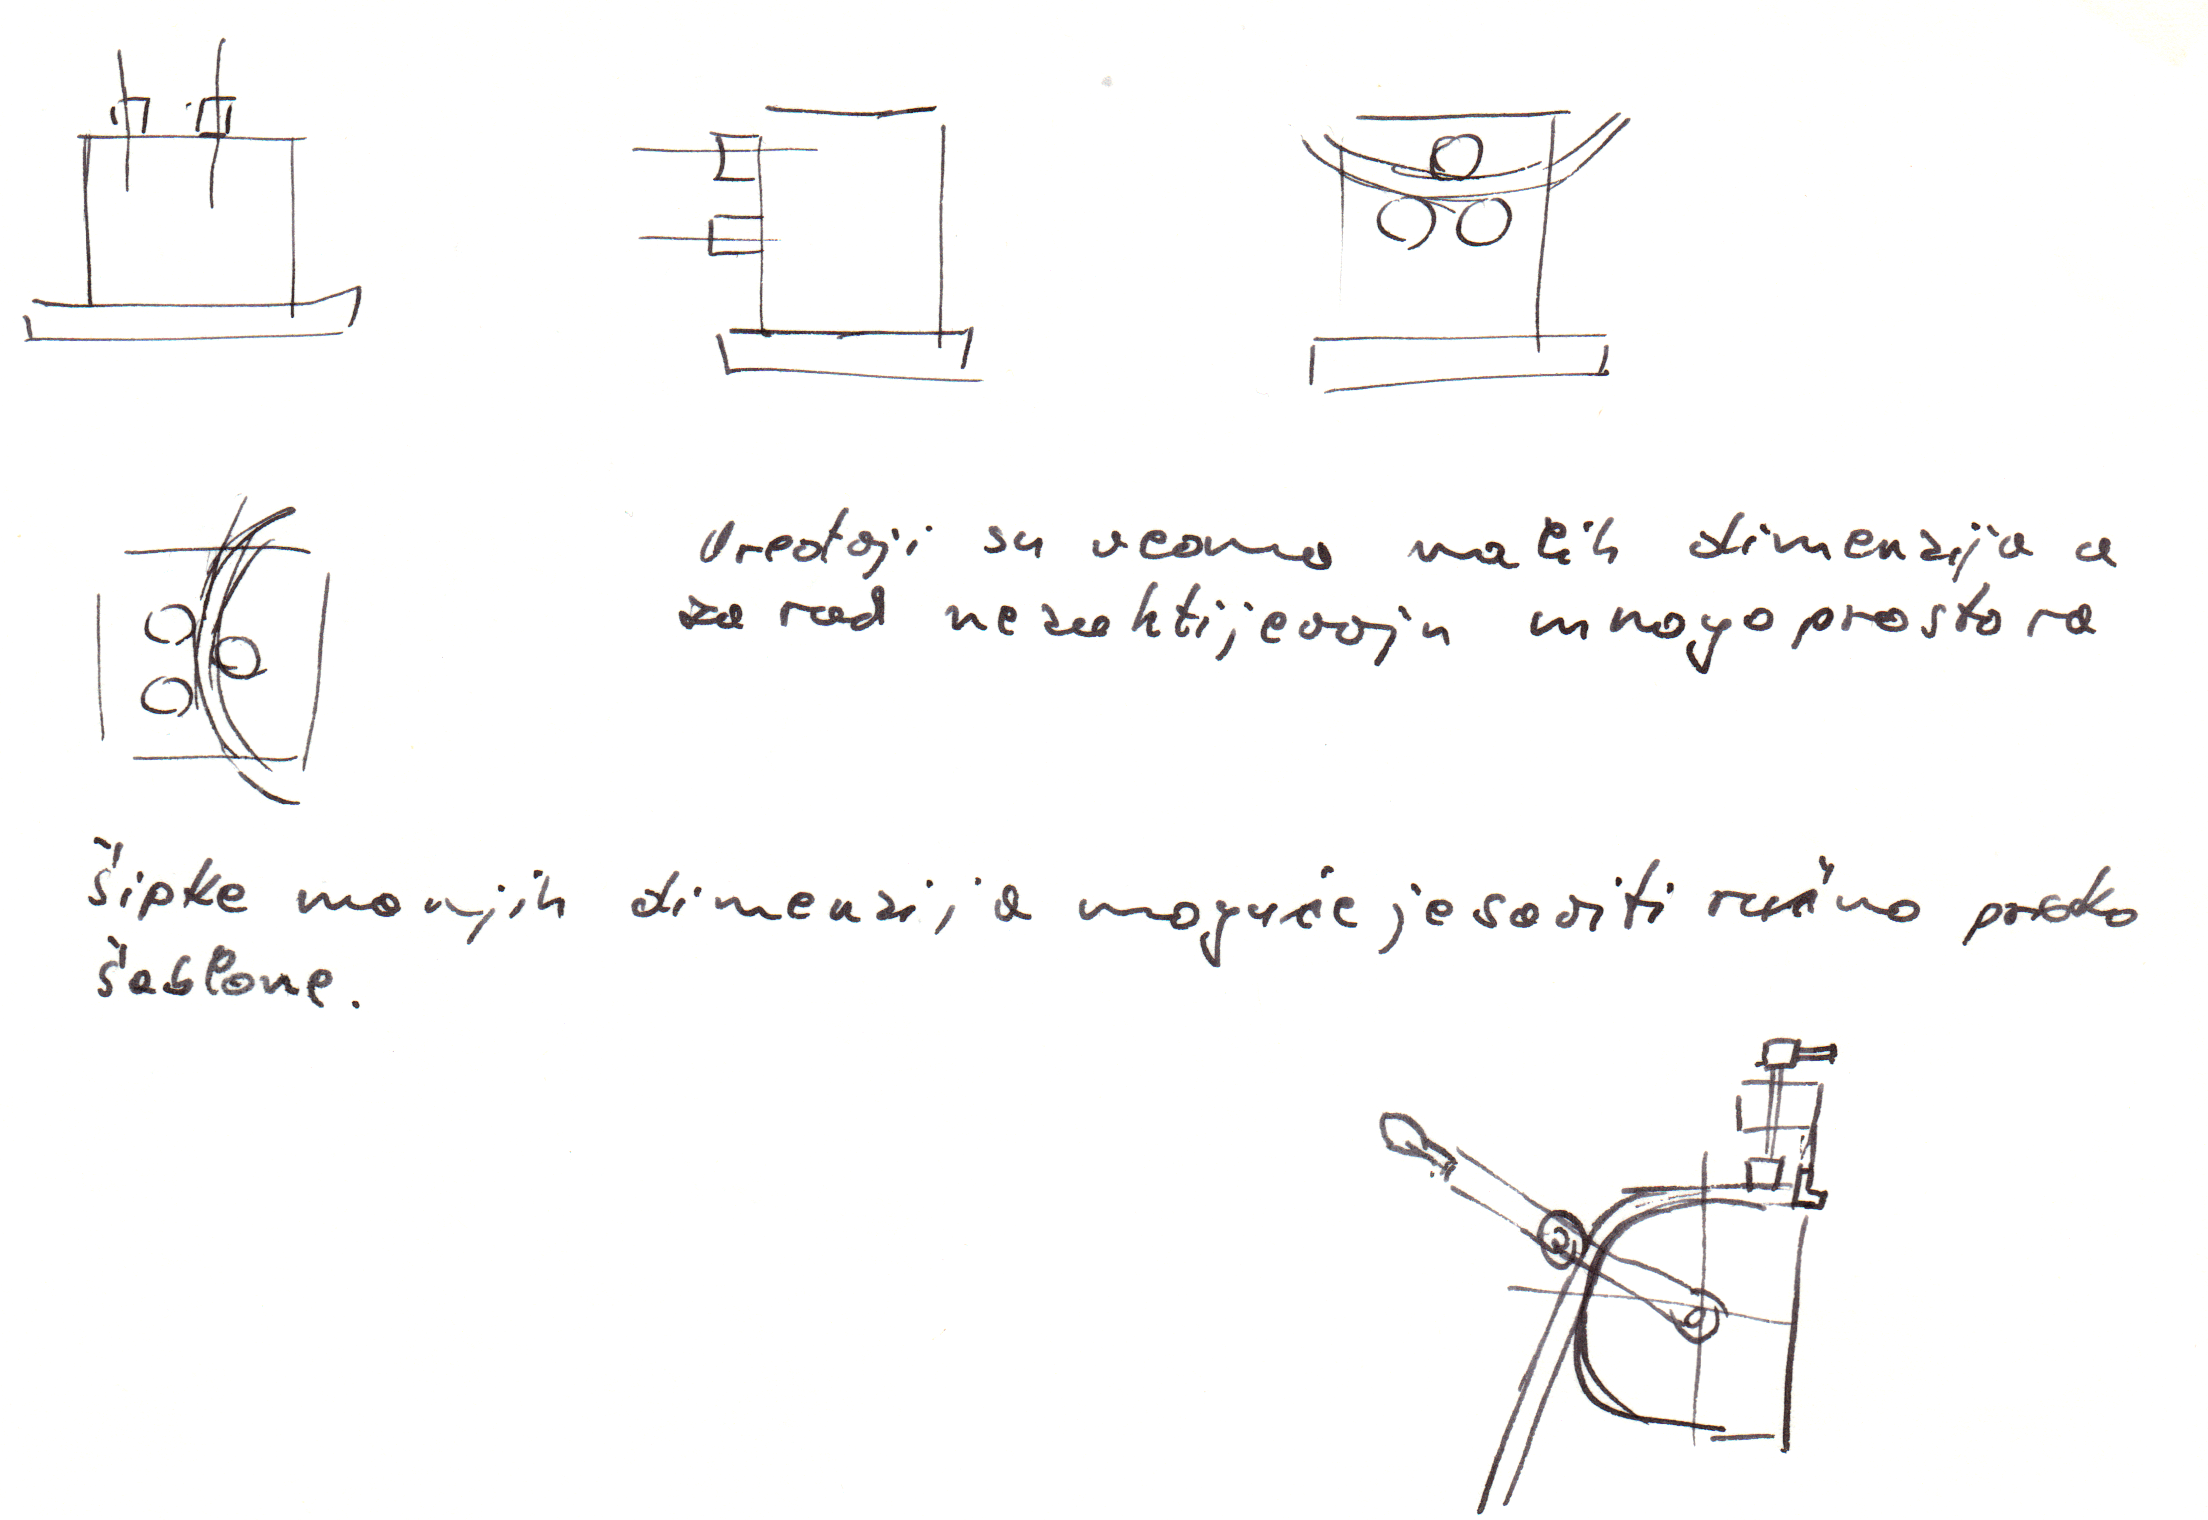 Uređaji su veoma malih dimenzija a
za rad nezahtijevaju mnogo prostora
šipke manjih dimenzija moguće je saviti ručno preko
šablone.